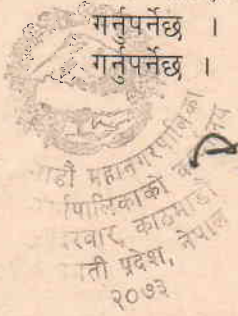 गर्नुपर्नेछ ।
गर्नुपर्नेछ ।
महानगरपालिका
काठमाडौं
प्रदेश, नेपाल
२०७३